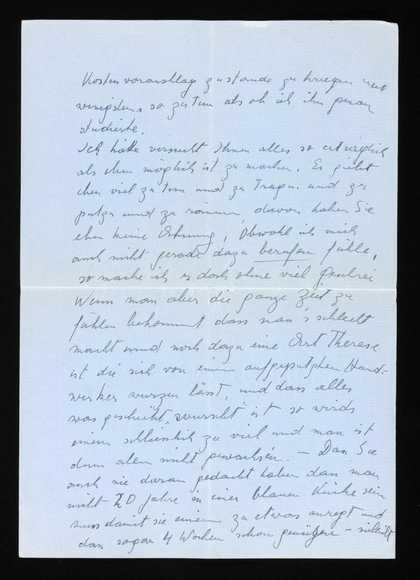 Kostenvoranschlag zustande zu kriegen und
wenigstens so zu tun als ob ich ihn genau
studierte.
Ich habe versucht Ihnen alles so erträglich
als eben möglich ist zu machen. Es giebt
eben viel zu tun und zu tragen und zu
putzen und zu räumen, davon haben Sie
eben keine Ahnung, obwohl ich mich
auch nicht gerade dazu berufen fühle,
so mache ich es doch ohne viel
Wenn man aber die ganze Zeit zu
fühlen bekommt dass man's schlecht
macht und noch dazu eine Art Therese
ist die sich von einem aufgeputzten Hand-
werker wurzen lässt, und dass alles
was geschieht, verursacht ist so wirds
einem schliesslich zu viel und man ist
dem allem nicht gewachsen. — Dass Sie
auch nie daran gedacht haben dass man
nicht 20 Jahre in einer blauen Küche sein
muss damit sie einem zu etwas anregt und
dass sogar 4 Wochen schon genügen —